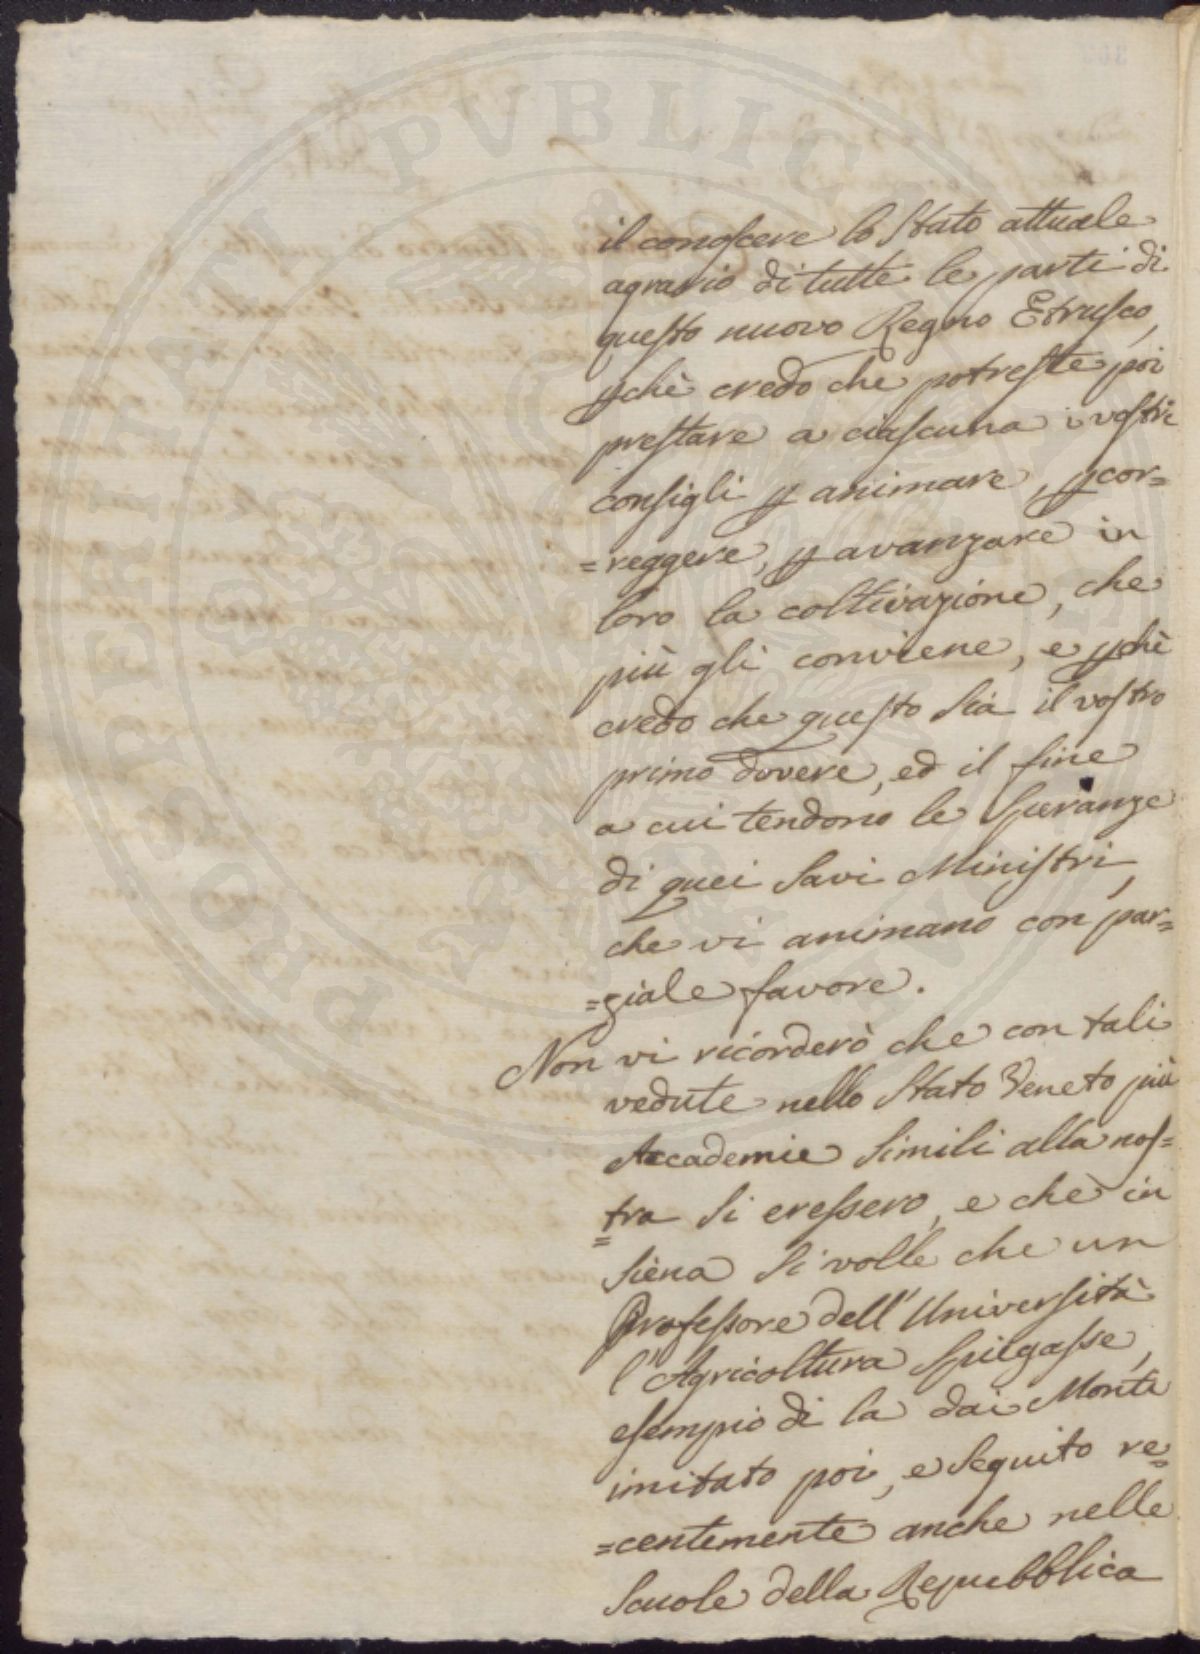 il conoscere lo Stato attuale
agrario di tutte le parti di
questo nuovo Regno Etrusco,
pchè credo che potreste poi
prestare a ciascuna i vostri
consigli p animare, p cor=
=reggere, p avanzare in
loro la coltivazione, che
più gli conviene, e pchè
credo che questo sia il vostro
primo dovere, ed il fine
a cui tendono le Speranze
di quei Savi Ministri,
che vi animano con par=
=ziale favore.
Non vi ricorderò che con tali
vedute nello Stato Veneto più
Accademie Simili alla nos=
=tra Si eressero, e che in
Siena Si volle che un
Professore dell'Università
l'Agricoltura Spiegasse,
esempio di la dai Monti
imitato poi, e Seguito re=
=centemente anche nelle
Scuole della Repubblica
PROSPERITATI PUBLICAE